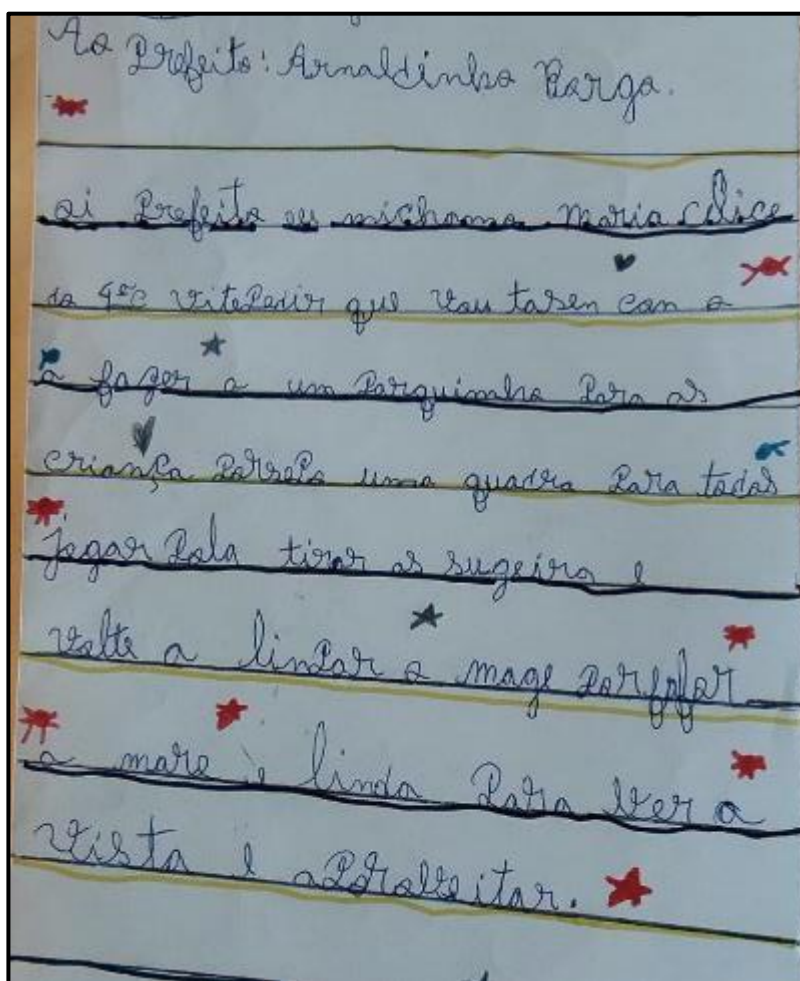 Ao Prefeito: Arnaldinho Borgo.
oi Prefeito eu michamo maria clice
do 4ºC vitePedir que vau tasen can o
a fazer a um Parquimho Para as
criança Parsepa uma quadra Para todos
jogar Pala tirar as sugeira e
volte a linPar o mage Porfpfor
a mare é linda Para ver a
vista e aProveitar.